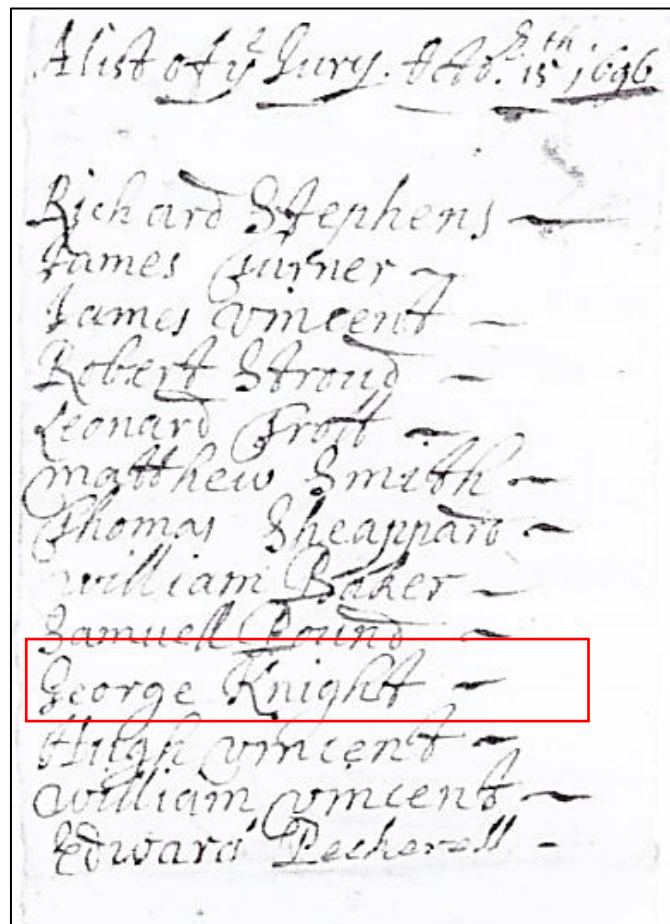 A list of yᵉ Jury. Octo. 15th 1696
Richard Stephens
James Turner
James Vincent
Robert Stroud
Leonard Trott
Matthew Smith
Thomas Sheappard
William Baker
Samuell Pound
George Knight
Hugh Vincent
William Vincent
Edward Pecherell